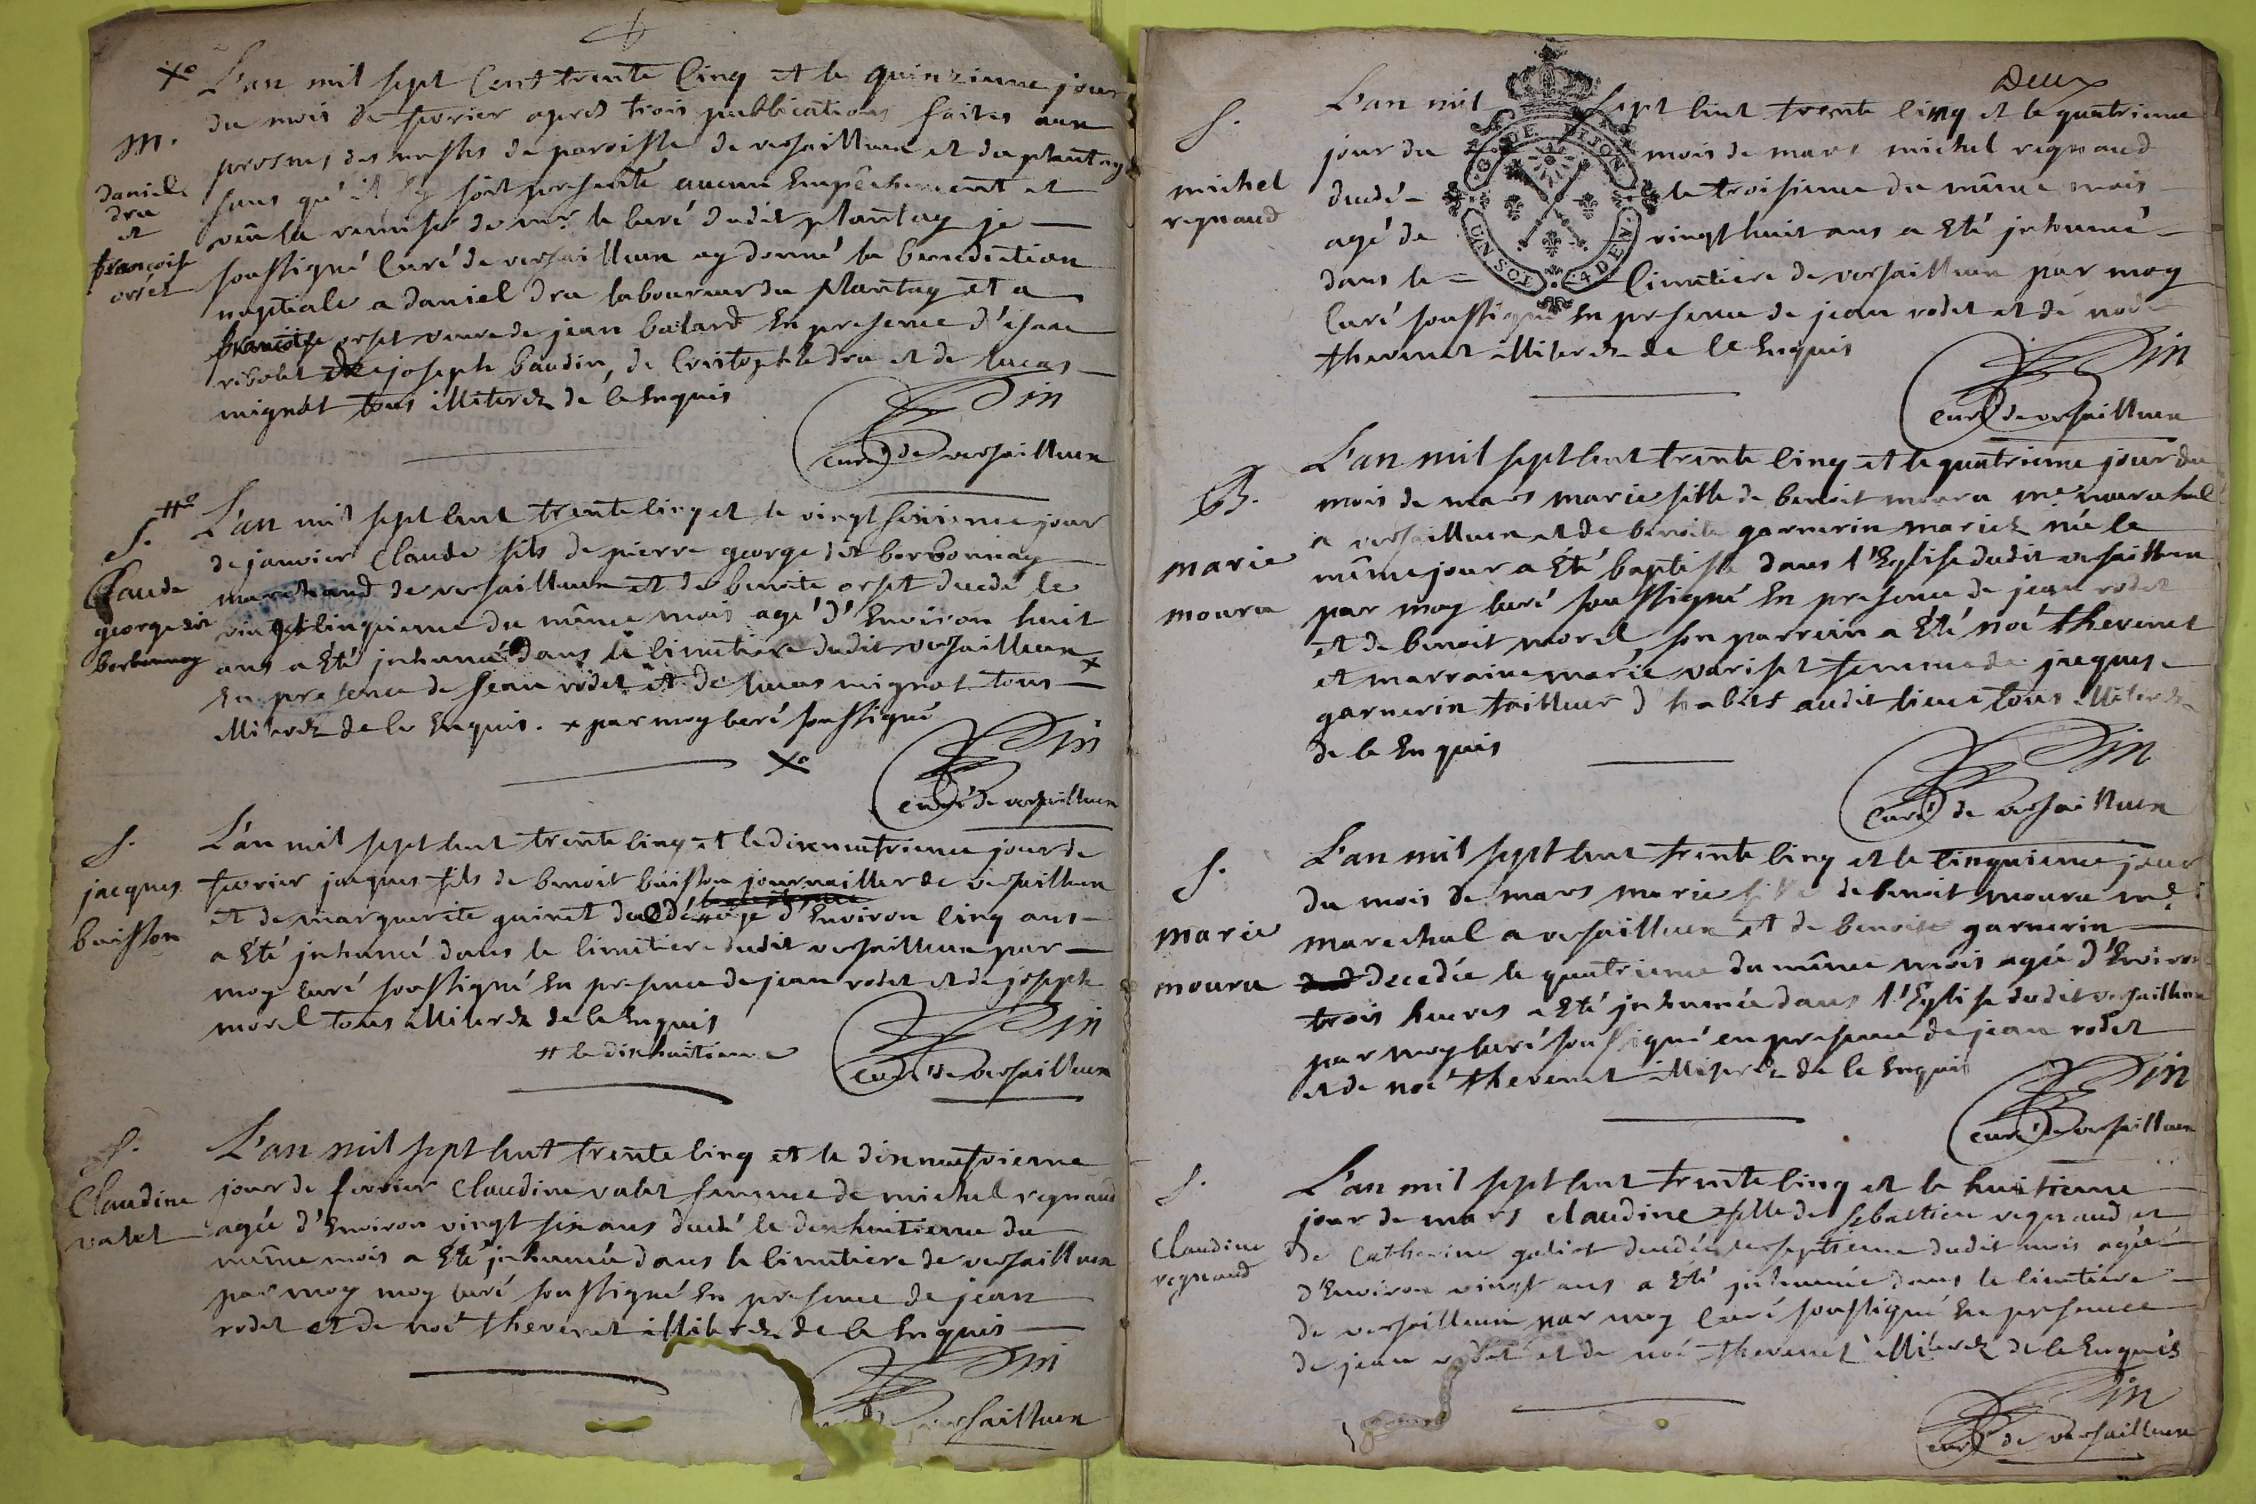 X°
L'an mil sept Cent trente Cinq et le quinzieme jour
du mois de fevrier apres trois publications faites aux
prosnes des messes de paroisse de versailleux et du plantay
sans qu'il sy soit presenté aucun Empêchement et
veu la remise de mr. le Curé dudit plantay je
soussigné Curé de versailleux ay donné la benediction
nuptiale a daniel dru laboureur du plantay et a
francoise orset veuve de jean batard En presence d'isaac
ribolet de joseph baudin, de Cristophle dru et de lucas
mignot tous illiterez de ce Enquis
Curé de versailleux
M.
daniel
dru
et
francoise
orset
#°
L'an mil sept Cent trente Cinq et le vingt sixieme jour
de janvier Claude fils de pierre george dit borbonnay
marchand de versailleux et de benoite orset decedé le
vingt Cinquieme du même mois agé d'Environ huit
ans a Eté inhumé dans le Cimetiere dudit versailleux x
En presence de jean rodet et de lucas mignot tous
illiterez de ce Enquis. x par moy Curé soussigné
X°
Curé de versailleux
S.
Claude
george dit
borbonnay
L'an mil sept Cent trente Cinq et le dixneufvieme jour de
fevrier jacques fils de benoit buisson journaillier de versailleux
et de marguerite guinet decedé # agé d'Environ Cinq ans
a Eté inhumé dans le Cimetiere dudit versailleux par
moy Curé soussigné En presence de jean rodet et de joseph
morel tous illiterez de ce Enquis
# le dixhuitieme
Curé de versailleux
S.
jacques
buisson
L'an mil sept Cent trente Cinq et le dixneufvieme
jour de fevrier Claudine valet femme de michel regnaud
agée d'Environ vingt six ans decedé le dixhuitieme du
même mois a Eté inhumée dans le Cimetiere de versailleux
par moy moy Curé soussigné En presence de jean
rodet et de noé thevenet illiterez de ce Enquis
versailleux
S.
Claudine
valet
Deux
G. DE DIJON
UN SOL 4 DEN.
L'an mil sept Cent trente Cinq et le quatrieme
jour du mois de mars michel regnaud
decedé le troisieme du même mois
agé de vingt huit ans a Eté inhumé
dans le Cimetiere de versailleux par moy
Curé soussigné En presence de jean rodet et de noé
thevenet illiterez de ce Enquis
Curé de versailleux
S.
michel
regnaud
L'an mil sept Cent trente Cinq et le quatrieme jour du
mois de mars marie fille de benoit moura me marechal
a versailleux et de benoite garnerin mariez née le
même jour a Eté baptisée dans l'Eglise dudit versailleux
par moy Curé soussigné En presence de jean rodet
et de benoit morel, son parrein a Eté noé thevenet
et marraine marie variset femme de jacques
garnerin tailleur d'habits audit lieu tous illiterez
de ce Enquis
Curé de versailleux
B.
marie
moura
L'an mil sept Cent trente Cinq et le Cinquieme jour
du mois de mars marie fille de benoit moura me.
marechal a versailleux et de benoite garnerin
decedée le quatrieme du même mois agée d'Environ
trois heures a Eté inhumée dans l'Eglise dudit versailleux
par moy Curé soussigné en presence de jean rodet
et de noé thevenet illiterez de ce Enquis
Curé de versailleux
S.
marie
moura
L'an mil sept Cent trente Cinq et le huitieme
jour de mars claudine fille de sebastien regnaud et
de Catherine galiot decedée le septieme dudit mois agée
d'Environ vingt ans a Eté inhumée dans le Cimetiere
de versailleux par moy Curé soussigné En presence
de jean rodet et de noé thevenet illiterez de ce Enquis
Curé de versailleux
S.
Claudine
regnaud